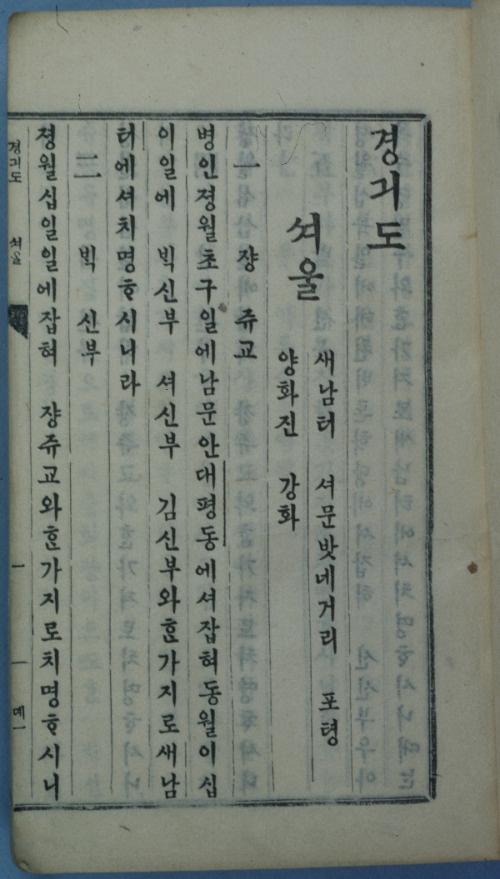 경긔도
셔울
새남터 셔문밧네거리 포텽
양화진 강화
一 쟝 쥬교
병인졍월초구일에남문안대평동에셔잡혀동월이십
이일에 빅신부 셔신부 김신부와ᄒᆞᆫ가지로새남
터에셔치명ᄒᆞ시니라
二 빅 신부
졍월십일일에잡혀 쟝쥬교와ᄒᆞᆫ가지로치명ᄒᆞ시니
경긔도 셔울 一